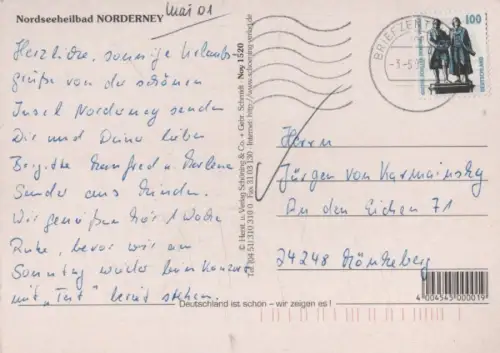 Nordseeheilbad NORDERNEY
Mai 01
Herzliche, sonnige Urlaubs-
grüße von der schönen
Insel Norderney senden
Dir und Deinen Lieben
Brigitte, Manfred u. Marlene
Sander aus Minden.
Wir genießen hier 1 Woche
Ruhe, bevor wir am
Sonntag wieder beim Konzert
mit „Test" bereit stehen.
© Horst u. Verlag Schöning & Co. + Gebr. Schmidt · Noy 1520
Tel. (04 51) 310 310 Fax 31 03 130 · Internet: http://www.schoening-verlag.de
BRIEFZENT
100
DEUTSCHLAND
Herrn
Jürgen von Karmainsky
An den Eichen 71
24248 Mönkeberg
4 004545 000019
Deutschland ist schön – wir zeigen es!